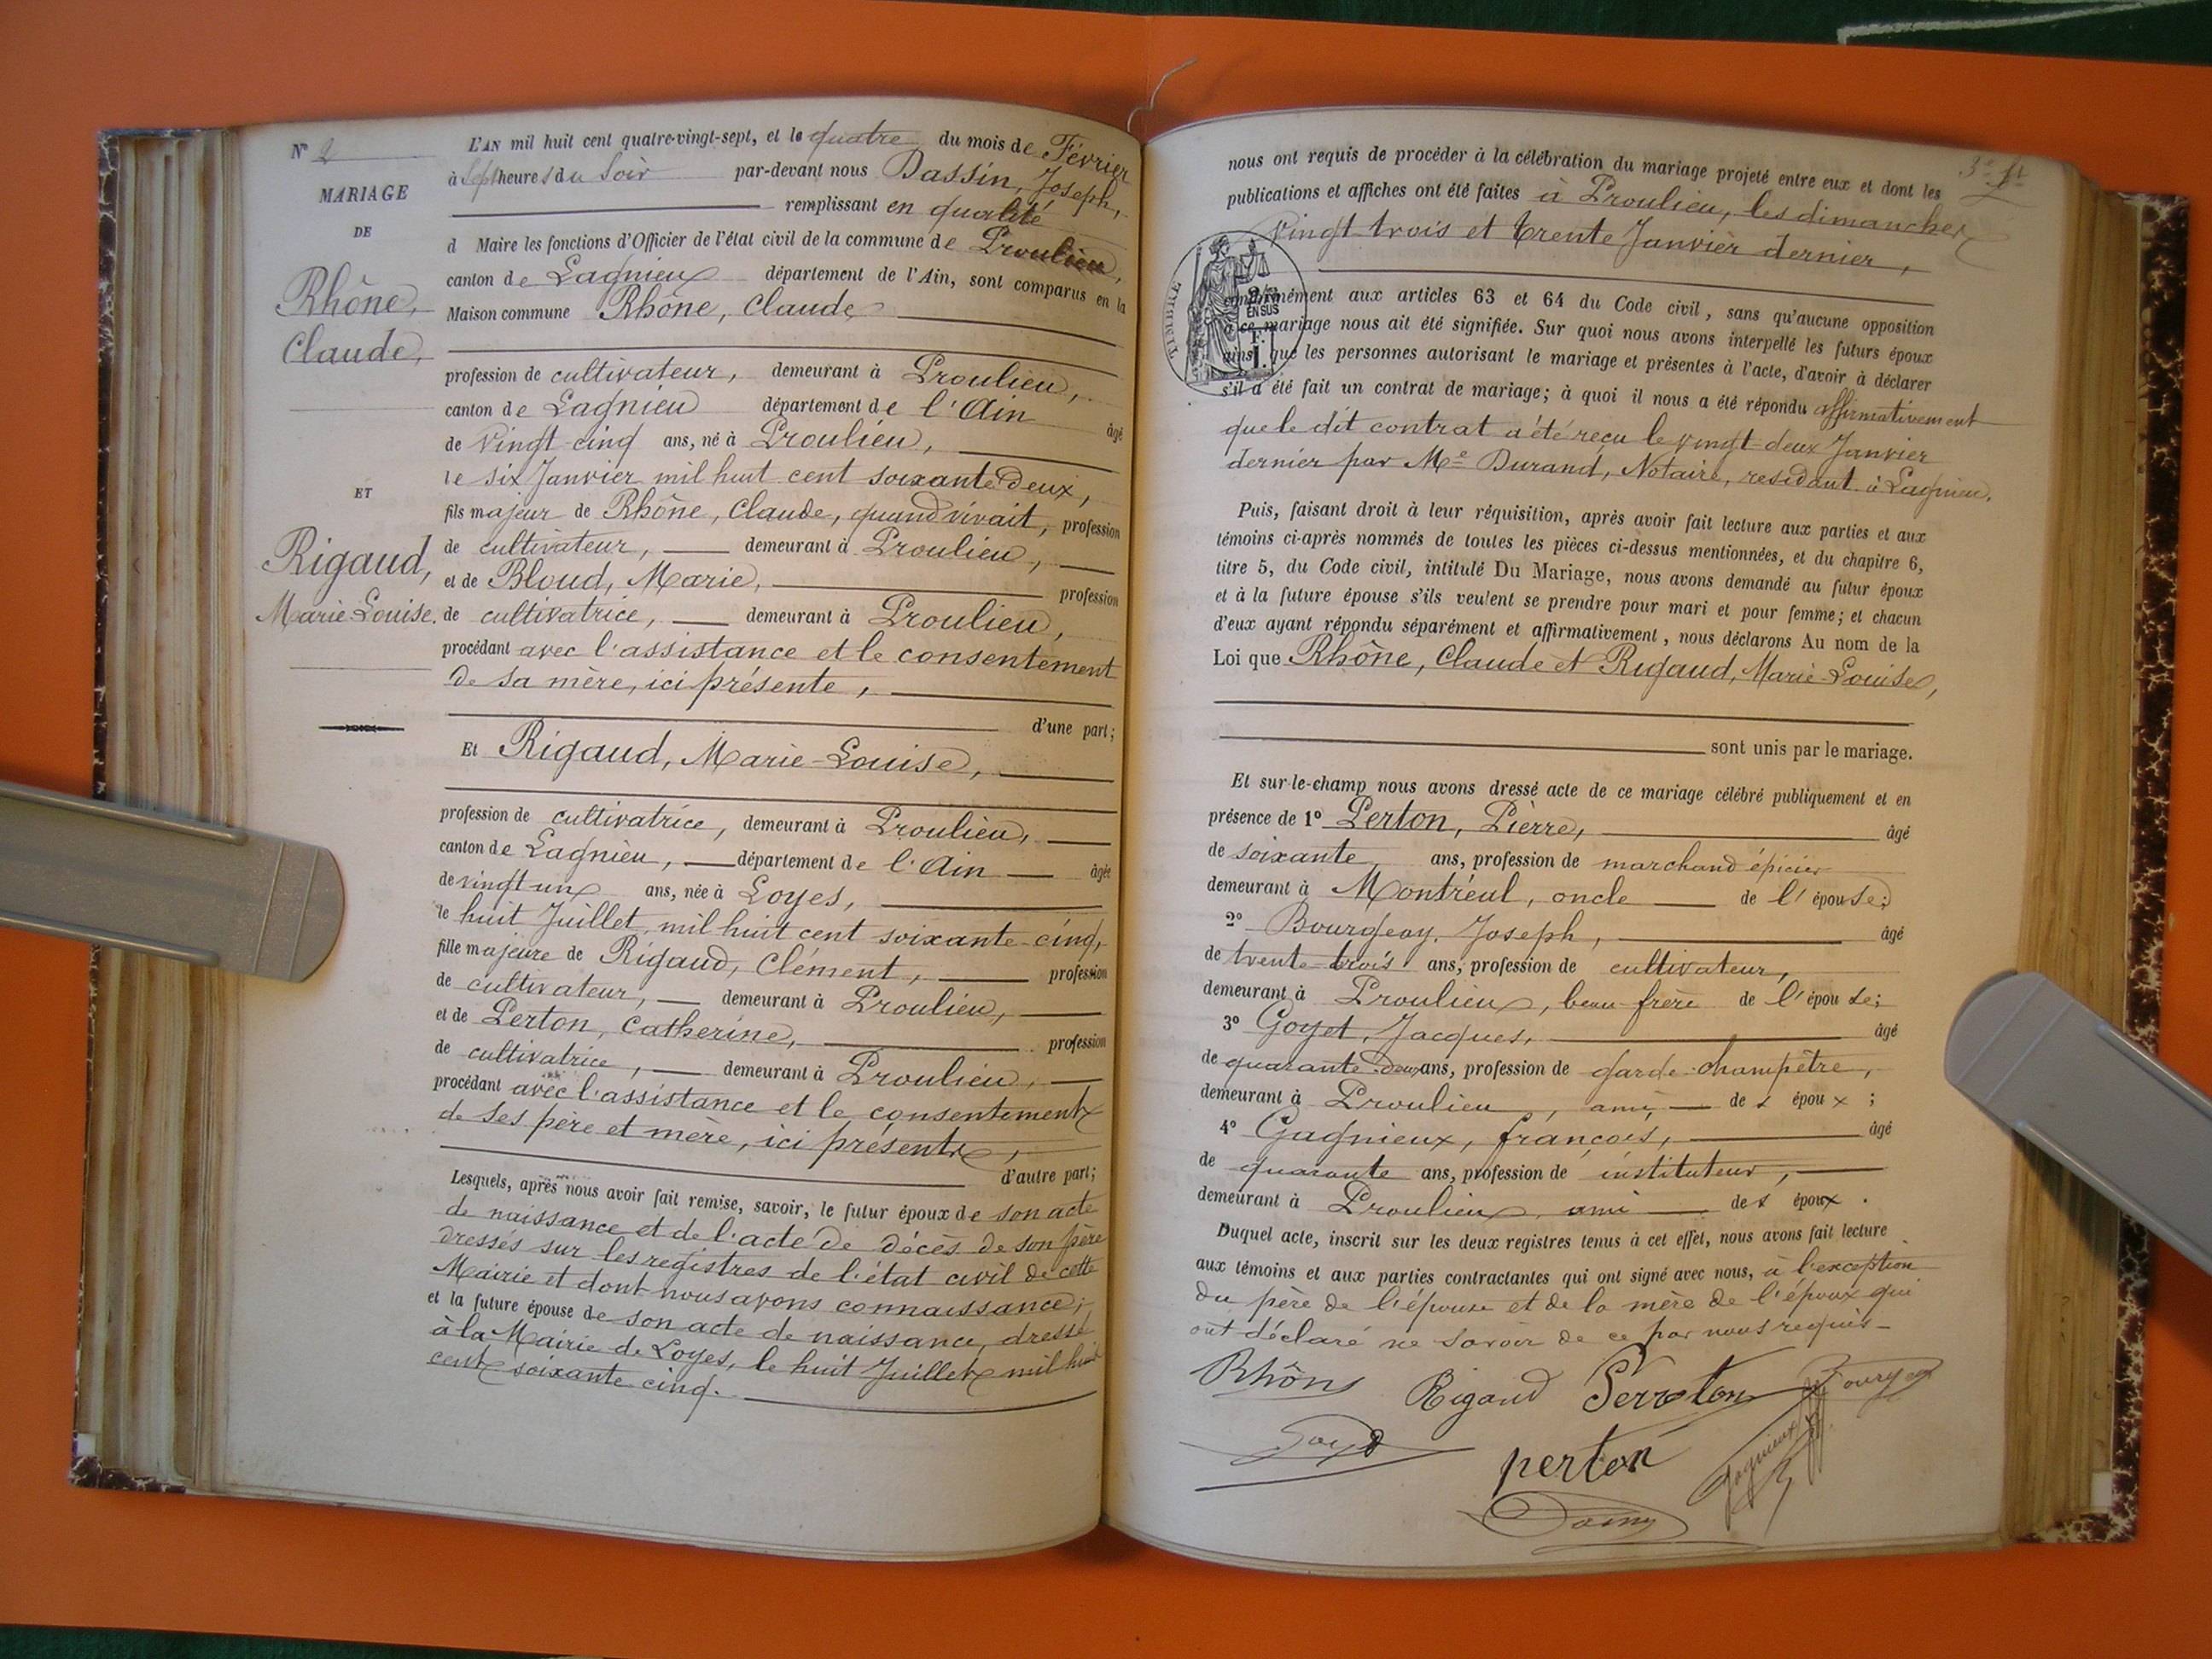 N° 2
MARIAGE
DE
Rhône,
Claude,
ET
Rigaud,
Marie-Louise.
L'AN mil huit cent quatre-vingt-sept, et le quatre du mois de Février
à Sept heures du Soir par-devant nous Dassin, Joseph,
remplissant en qualité
d Maire les fonctions d'Officier de l'état civil de la commune de Proulieu,
canton de Lagnieu département de l'Ain, sont comparus en la
Maison commune Rhône, Claude
profession de cultivateur, demeurant à Proulieu,
canton de Lagnieu département de l'Ain âgé
de vingt-cinq ans, né à Proulieu,
le six Janvier mil huit cent soixante deux,
fils majeur de Rhône, Claude, quand vivait, profession
de cultivateur, demeurant à Proulieu,
et de Bloud, Marie, profession
de cultivatrice, demeurant à Proulieu,
procédant avec l'assistance et le consentement
de sa mère, ici présente,
d'une part;
Et Rigaud, Marie-Louise,
profession de cultivatrice, demeurant à Proulieu,
canton de Lagnieu, département de l'Ain âgée
de vingt un ans, née à Loyes,
le huit Juillet mil huit cent soixante-cinq,
fille majeure de Rigaud, Clément, profession
de cultivateur, demeurant à Proulieu,
et de Perton, Catherine, profession
de cultivatrice, demeurant à Proulieu,
procédant avec l'assistance et le consentement
de ses père et mère, ici présents,
d'autre part;
Lesquels, après nous avoir fait remise, savoir, le futur époux de son acte
de naissance et de l'acte de décès de son père
dressés sur les registres de l'état civil de cette
Mairie et dont nous avons connaissance;
et la future épouse de son acte de naissance, dressé
à la Mairie de Loyes, le huit Juillet mil huit
cent soixante cinq.
nous ont requis de procéder à la célébration du mariage projeté entre eux et dont les
publications et affiches ont été faites à Proulieu, les dimanches
vingt trois et trente Janvier dernier,
TIMBRE
EN SUS
conformément aux articles 63 et 64 du Code civil, sans qu'aucune opposition
à ce mariage nous ait été signifiée. Sur quoi nous avons interpellé les futurs époux
ainsi que les personnes autorisant le mariage et présentes à l'acte, d'avoir à déclarer
s'il a été fait un contrat de mariage; à quoi il nous a été répondu affirmativement
que le dit contrat a été reçu le vingt-deux Janvier
dernier par Me Durand, Notaire, résidant à Lagnieu.
Puis, faisant droit à leur réquisition, après avoir fait lecture aux parties et aux
témoins ci-après nommés de toutes les pièces ci-dessus mentionnées, et du chapitre 6,
titre 5, du Code civil, intitulé Du Mariage, nous avons demandé au futur époux
et à la future épouse s'ils veulent se prendre pour mari et pour femme; et chacun
d'eux ayant répondu séparément et affirmativement, nous déclarons Au nom de la
Loi que Rhône, Claude et Rigaud, Marie-Louise,
sont unis par le mariage.
Et sur-le-champ nous avons dressé acte de ce mariage célébré publiquement et en
présence de 1° Perton, Pierre, âgé
de soixante ans, profession de marchand épicier
demeurant à Montréal, oncle de l'épouse;
2° Bourgeay, Joseph, âgé
de trente trois ans, profession de cultivateur,
demeurant à Proulieu, beau-frère de l'épouse;
3° Goyet, Jacques, âgé
de quarante deux ans, profession de garde-champêtre,
demeurant à Proulieu, ami, de s époux;
4° Gagnieux, françois, âgé
de quarante ans, profession de instituteur,
demeurant à Proulieu, ami de s époux.
Duquel acte, inscrit sur les deux registres tenus à cet effet, nous avons fait lecture
aux témoins et aux parties contractantes qui ont signé avec nous, à l'exception
du père de l'épouse et de la mère de l'époux qui
ont déclaré ne savoir de ce par nous requis-
Rhône Rigaud Perroton Bourgeay
Goyet perton Gagnieux